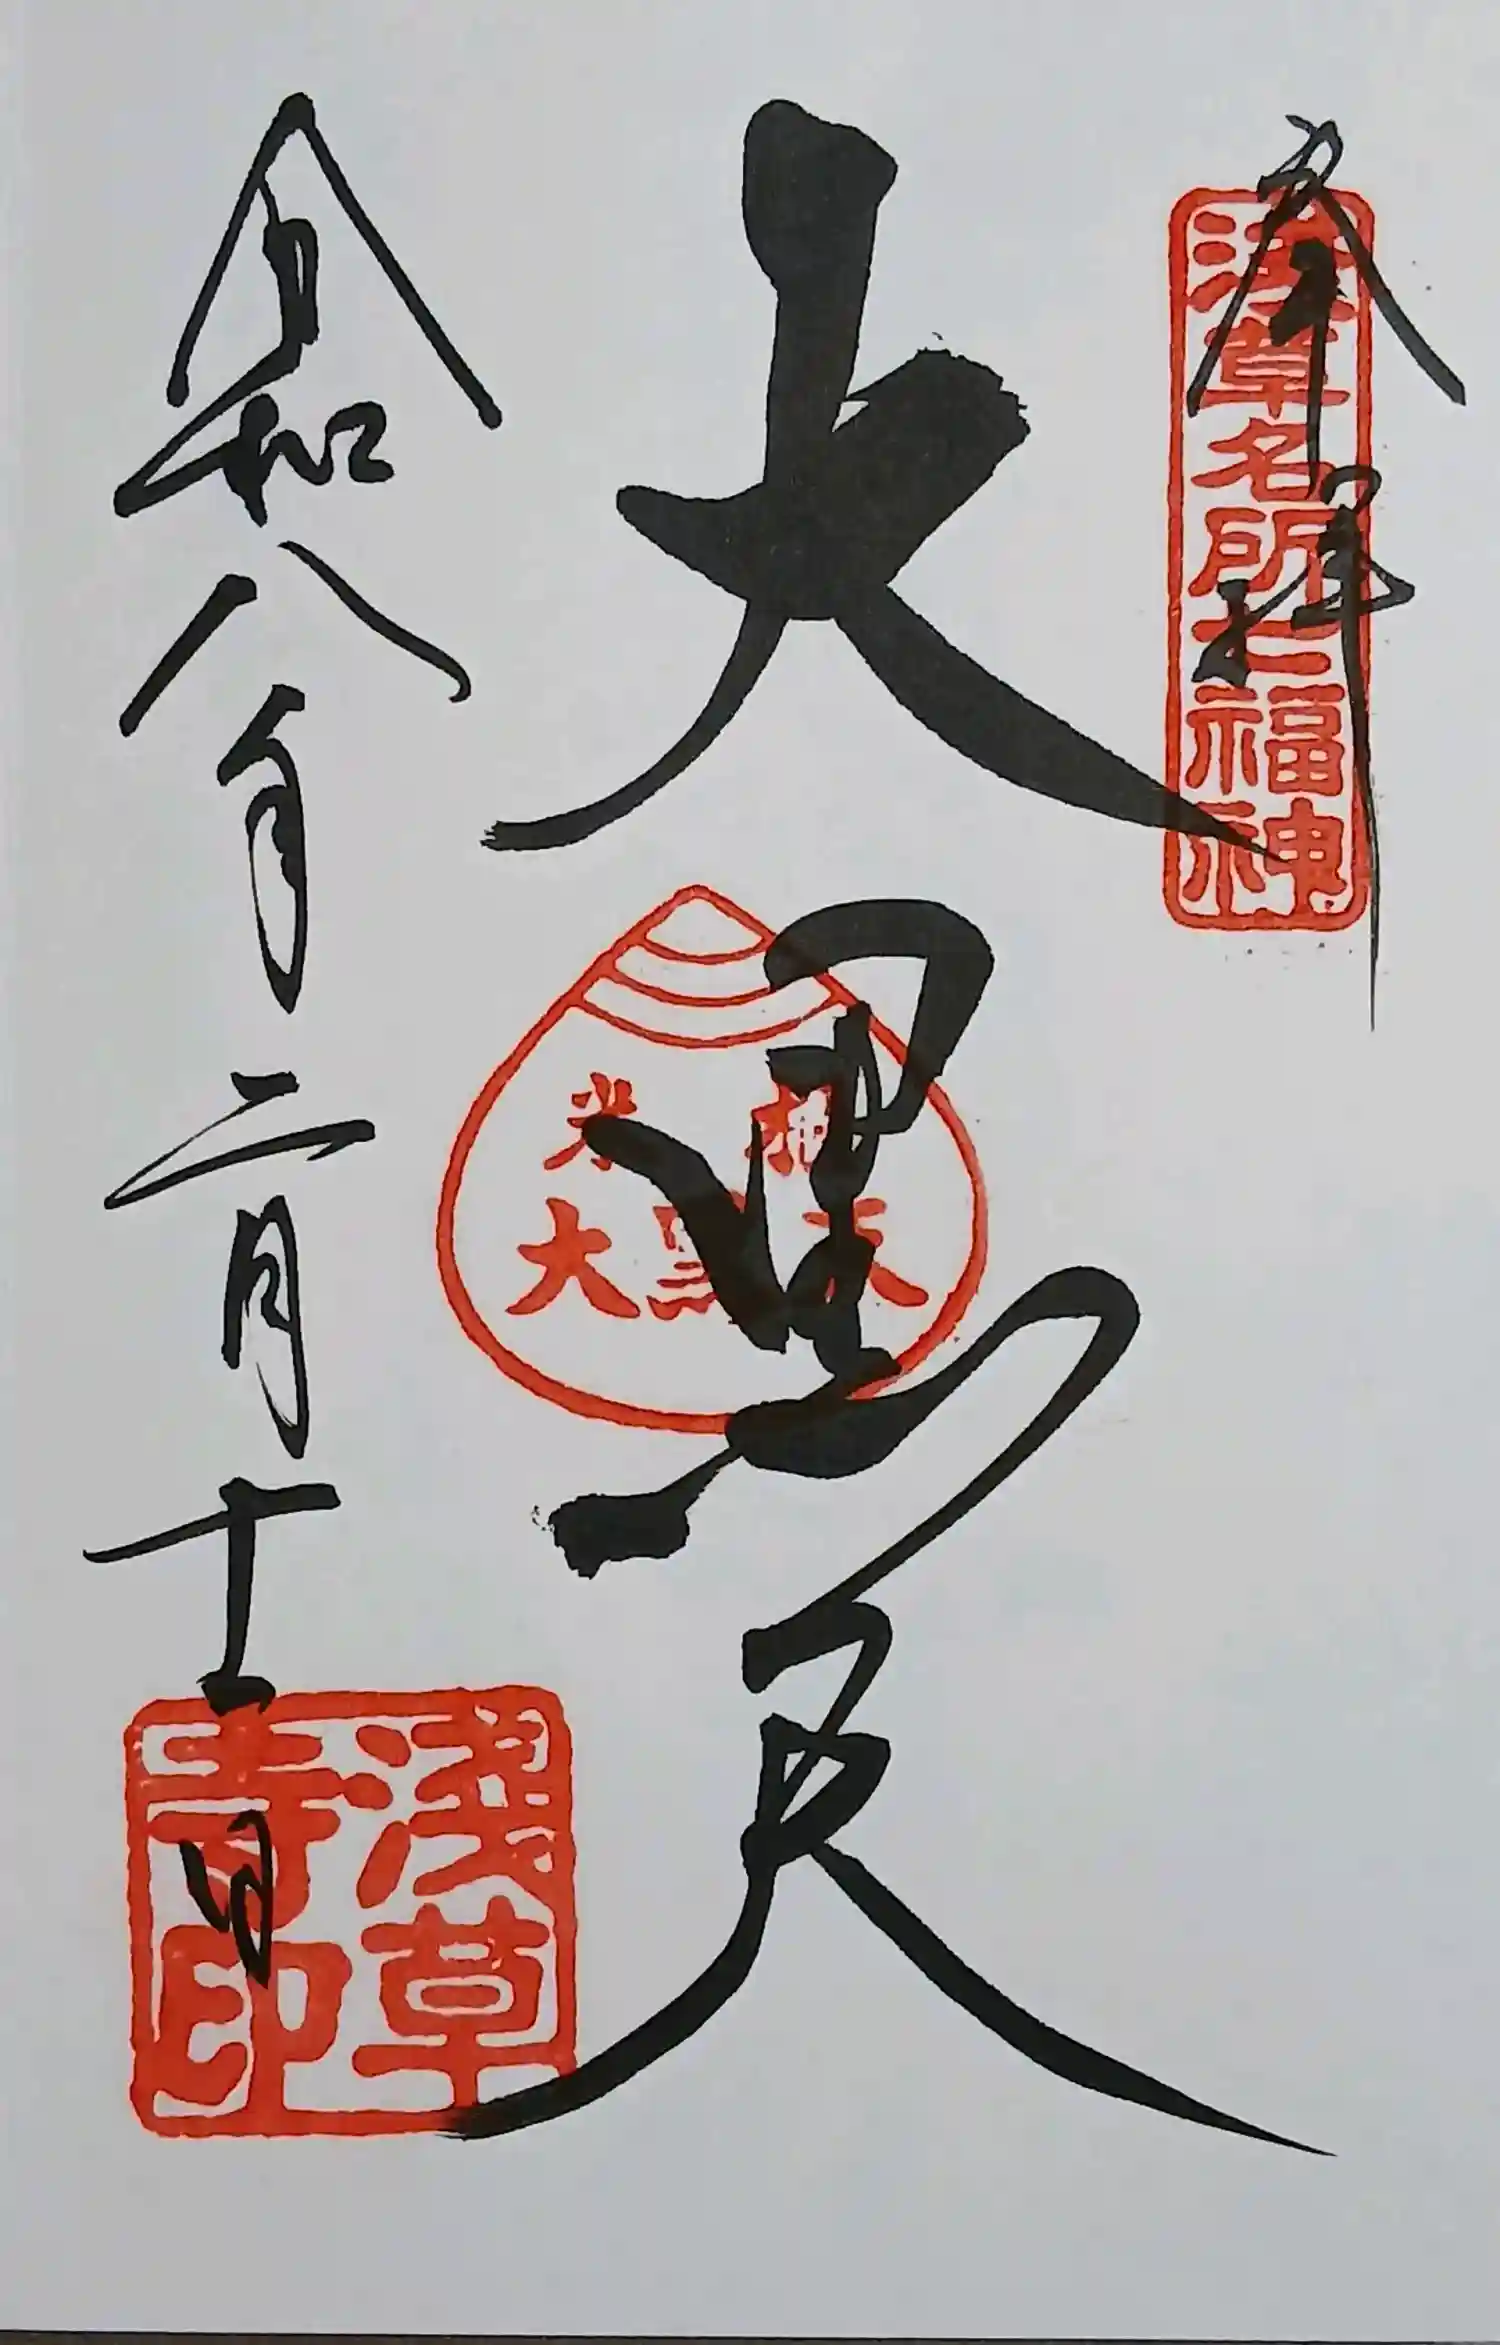 奉拝
浅草名所七福神
大黒天
米
大黒天
令和八年二月十一日
淺草
寺印